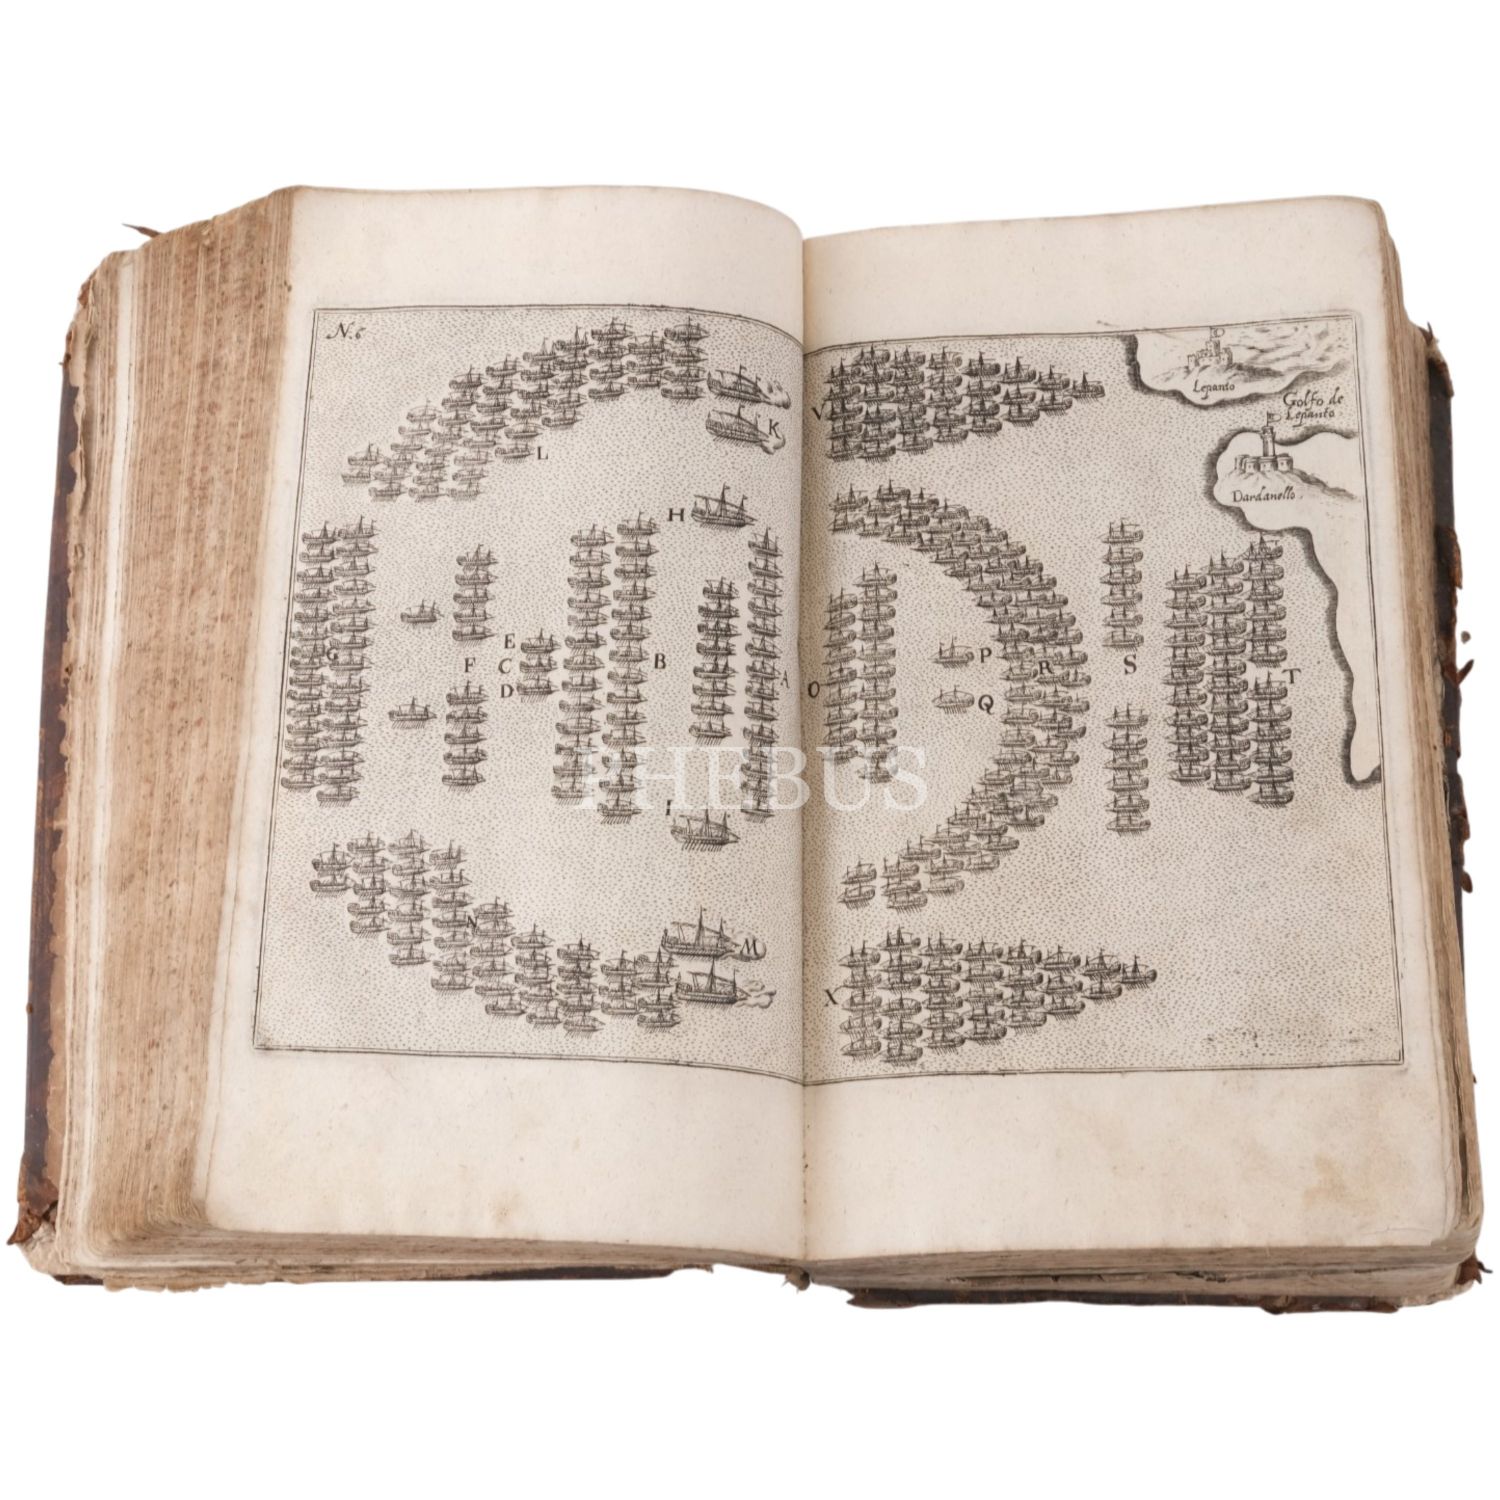 N. 6
Lepanto
Golfo de
Lepanto
K
V
L
Dardanello
H
G
F
E
C
D
B
A
O
P
Q
R
S
T
PHEBUS
I
N
M
X